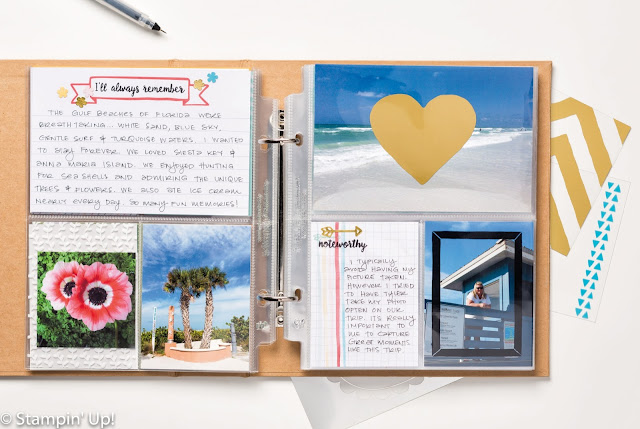 I'll always remember
THE GULF BEACHES OF FLORIDA WERE
BREATHTAKING... WHITE SAND, BLUE SKY,
GENTLE SURF & TURQUOISE WATERS. I WANTED
TO STAY FOREVER. WE LOVED SIESTA KEY &
ANNA MARIA ISLAND. WE ENJOYED HUNTING
FOR SEASHELLS AND ADMIRING THE UNIQUE
TREES & FLOWERS. WE ALSO ATE ICE CREAM
NEARLY EVERY DAY. SO MANY FUN MEMORIES!
noteworthy
I TYPICALLY
AVOID HAVING MY
PICTURE TAKEN.
HOWEVER I TRIED
TO HAVE TYLER
TAKE MY PHOTO
OFTEN ON OUR
TRIP. IT'S REALLY
IMPORTANT TO
ME TO CAPTURE
GREAT MOMENTS
LIKE THIS TRIP.
© Stampin' Up!